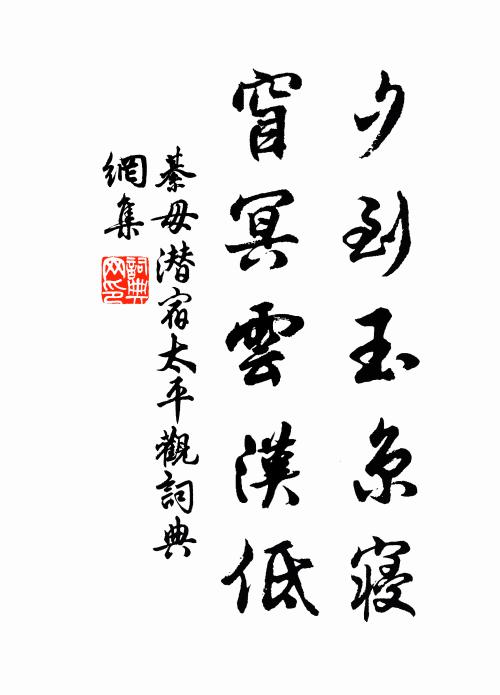 夕到玉京寝
窅冥雲漢低
綦毋潛宿太平觀詞典
網集
詞典網印